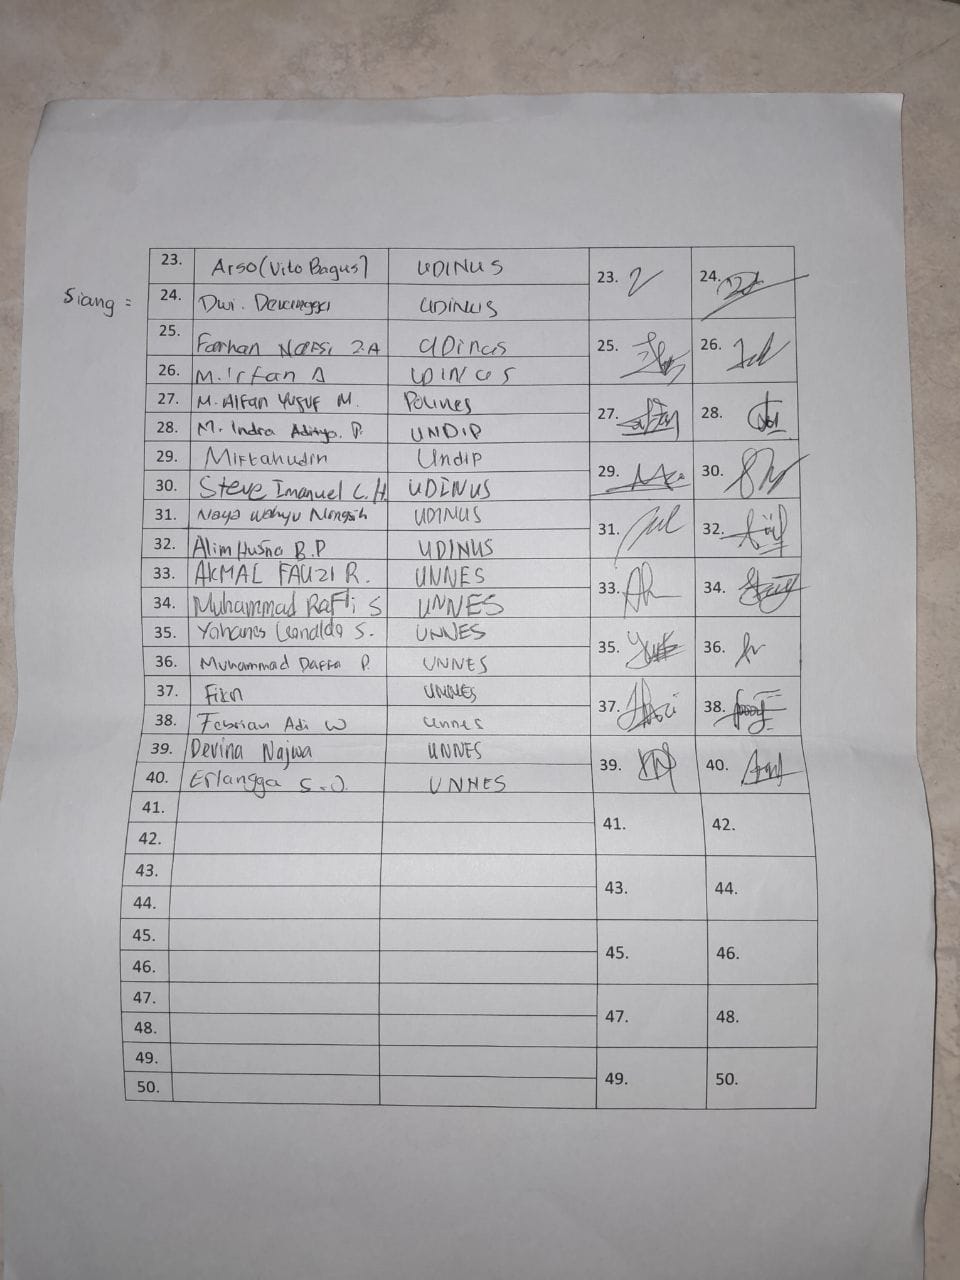 Siang =
23. Arso (Vito Bagus) UDINUS 23. 24.
24. Dwi. UDINUS
25. Farhan UDinus 25. 26.
26. M. Irfan A UDINUS
27. M. Alfan Yusuf M. Polines 27. 28.
28. M. Indra Aditya. P. UNDIP
29. Miftahudin Undip 29. 30.
30. Steve Imanuel C.H. UDINUS
31. Naya Wahyu UDINUS 31. 32.
32. Alim Husna B.P UDINUS
33. AKMAL FAUZI R. UNNES 33. 34.
34. Muhammad Raffi S UNNES
35. Yohanes Leonaldo S. UNNES 35. 36.
36. Muhammad Daffa P. UNNES
37. UNNES 37. 38.
38. Febrian Adi W unnes
39. Devina Najwa UNNES 39. 40.
40. Erlangga UNNES
41. 41. 42.
42.
43. 43. 44.
44.
45. 45. 46.
46.
47. 47. 48.
48.
49. 49. 50.
50.